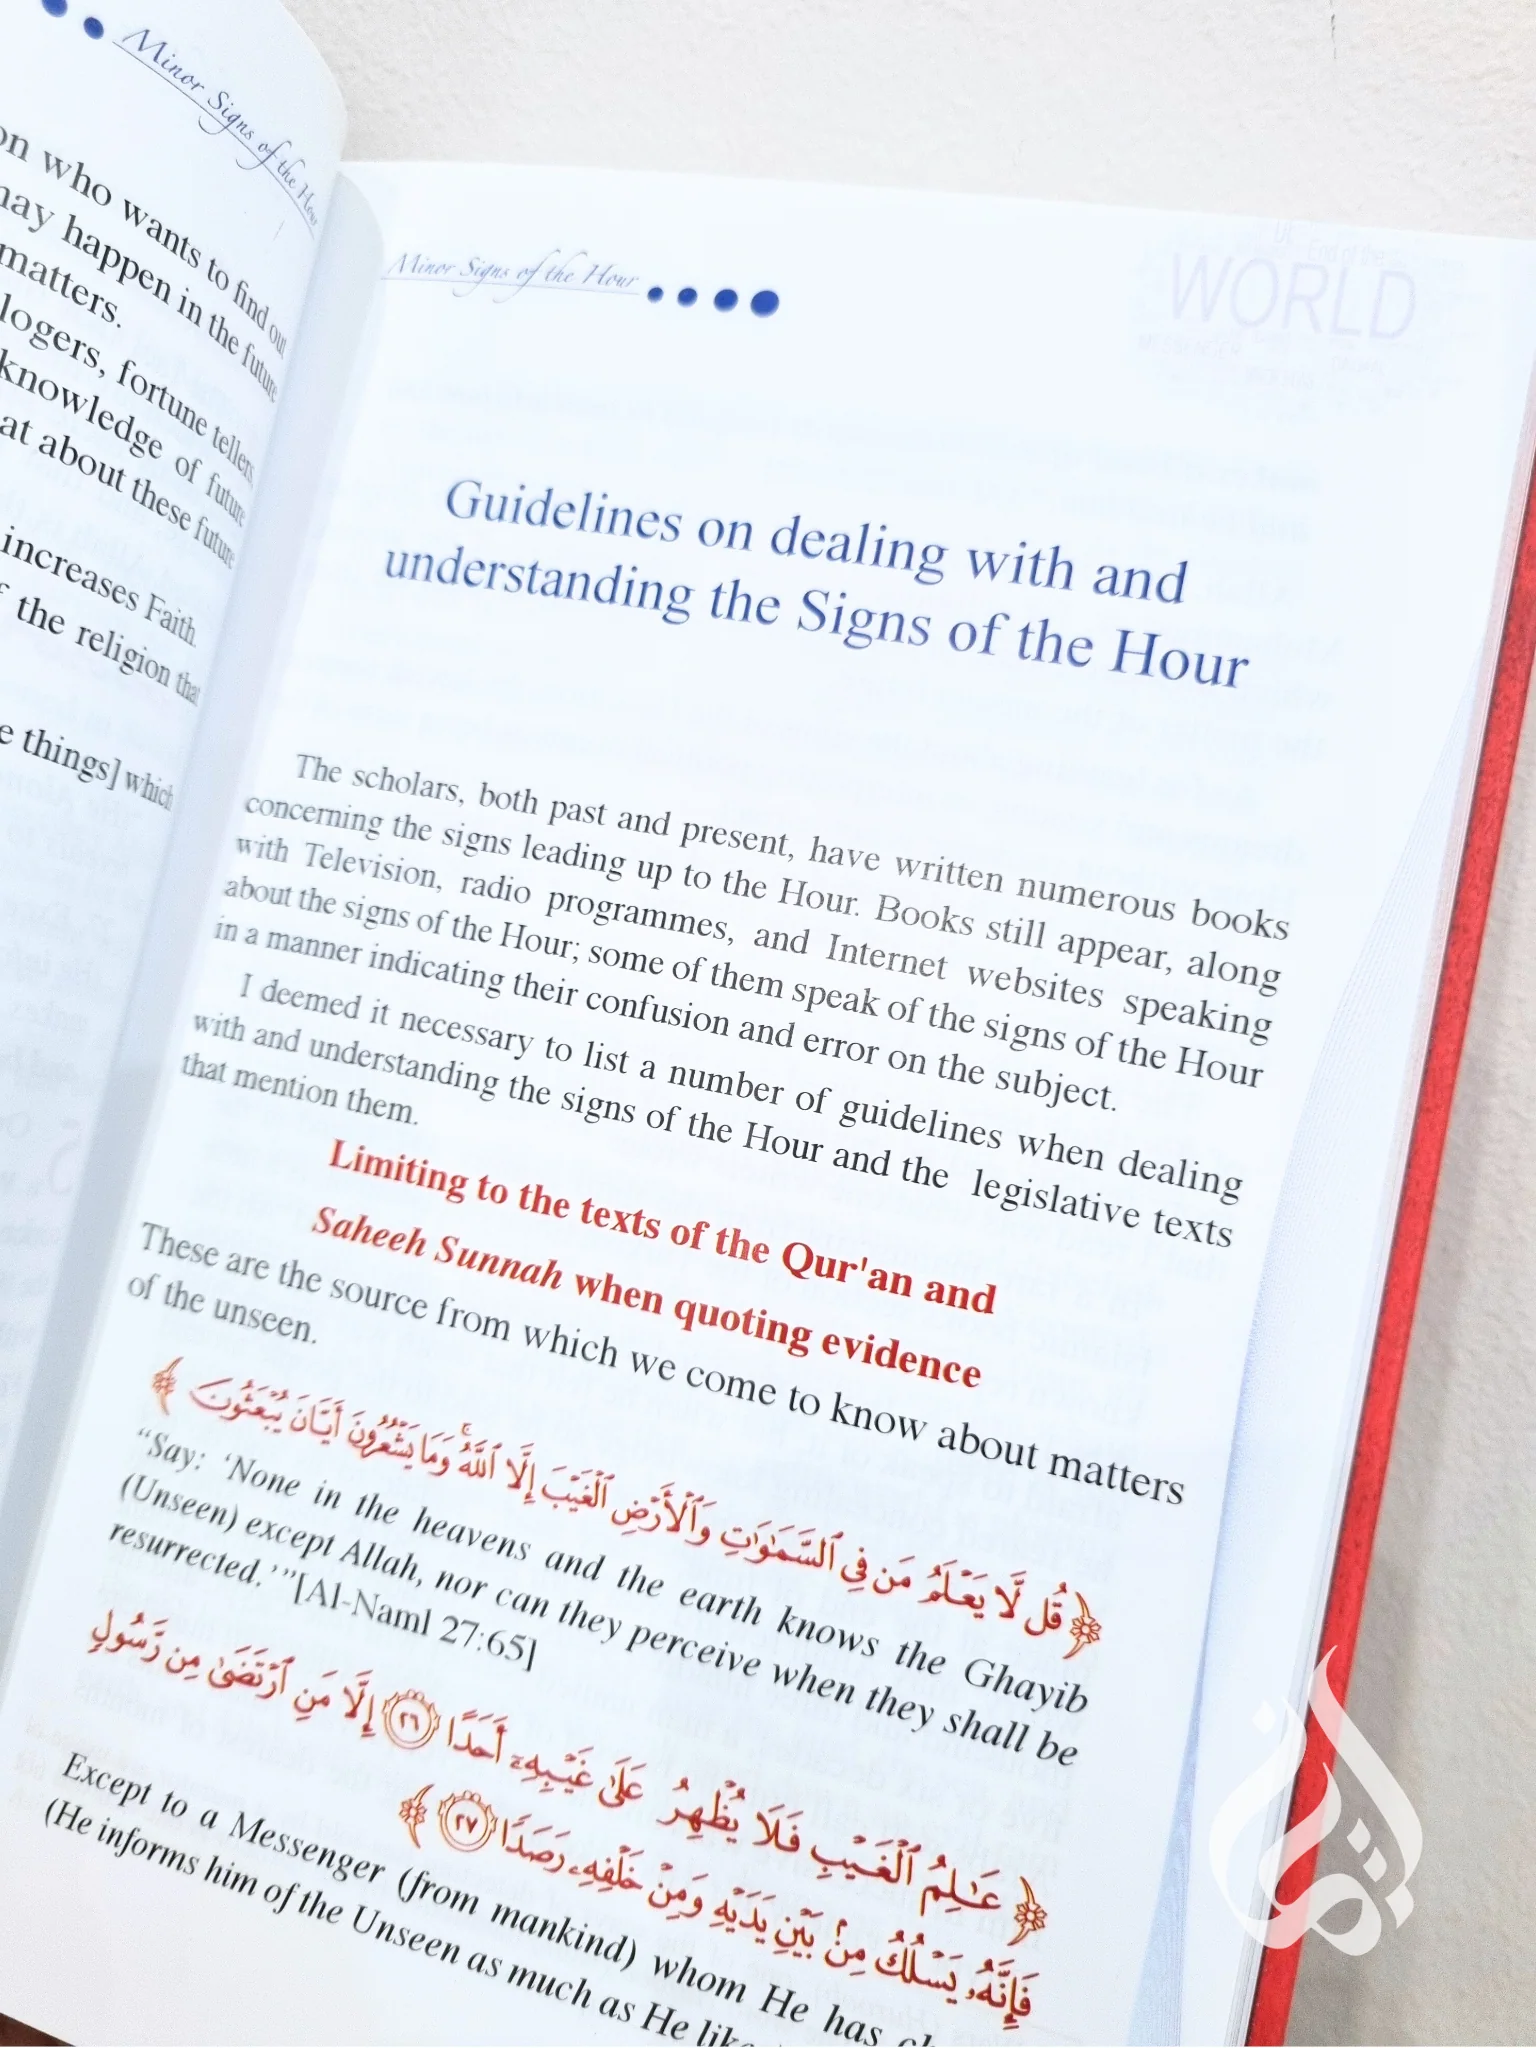 Minor Signs of the Hour
on who wants to find out
may happen in the future
matters.
logers, fortune tellers,
knowledge of future
at about these future
increases Faith.
f the religion that
e things] which
Minor Signs of the Hour
WORLD
Guidelines on dealing with and
understanding the Signs of the Hour
The scholars, both past and present, have written numerous books
concerning the signs leading up to the Hour. Books still appear, along
with Television, radio programmes, and Internet websites speaking
about the signs of the Hour; some of them speak of the signs of the Hour
in a manner indicating their confusion and error on the subject.
I deemed it necessary to list a number of guidelines when dealing
with and understanding the signs of the Hour and the legislative texts
that mention them.
Limiting to the texts of the Qur'an and
Saheeh Sunnah when quoting evidence
These are the source from which we come to know about matters
of the unseen.
﴿ قُل لَّا يَعْلَمُ مَن فِي ٱلسَّمَٰوَٰتِ وَٱلْأَرْضِ ٱلْغَيْبَ إِلَّا ٱللَّهُ ۚ وَمَا يَشْعُرُونَ أَيَّانَ يُبْعَثُونَ ﴾
“Say: ‘None in the heavens and the earth knows the Ghayib
(Unseen) except Allah, nor can they perceive when they shall be
resurrected.’”[Al-Naml 27:65]
﴿ عَٰلِمُ ٱلْغَيْبِ فَلَا يُظْهِرُ عَلَىٰ غَيْبِهِۦٓ أَحَدًا ٢٦ إِلَّا مَنِ ٱرْتَضَىٰ مِن رَّسُولٍ
فَإِنَّهُۥ يَسْلُكُ مِنۢ بَيْنِ يَدَيْهِ وَمِنْ خَلْفِهِۦ رَصَدًا ٢٧ ﴾
Except to a Messenger (from mankind) whom He has
(He informs him of the Unseen as much as He